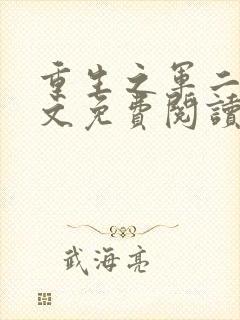 重生之军二
文免費閱讀
武海亮